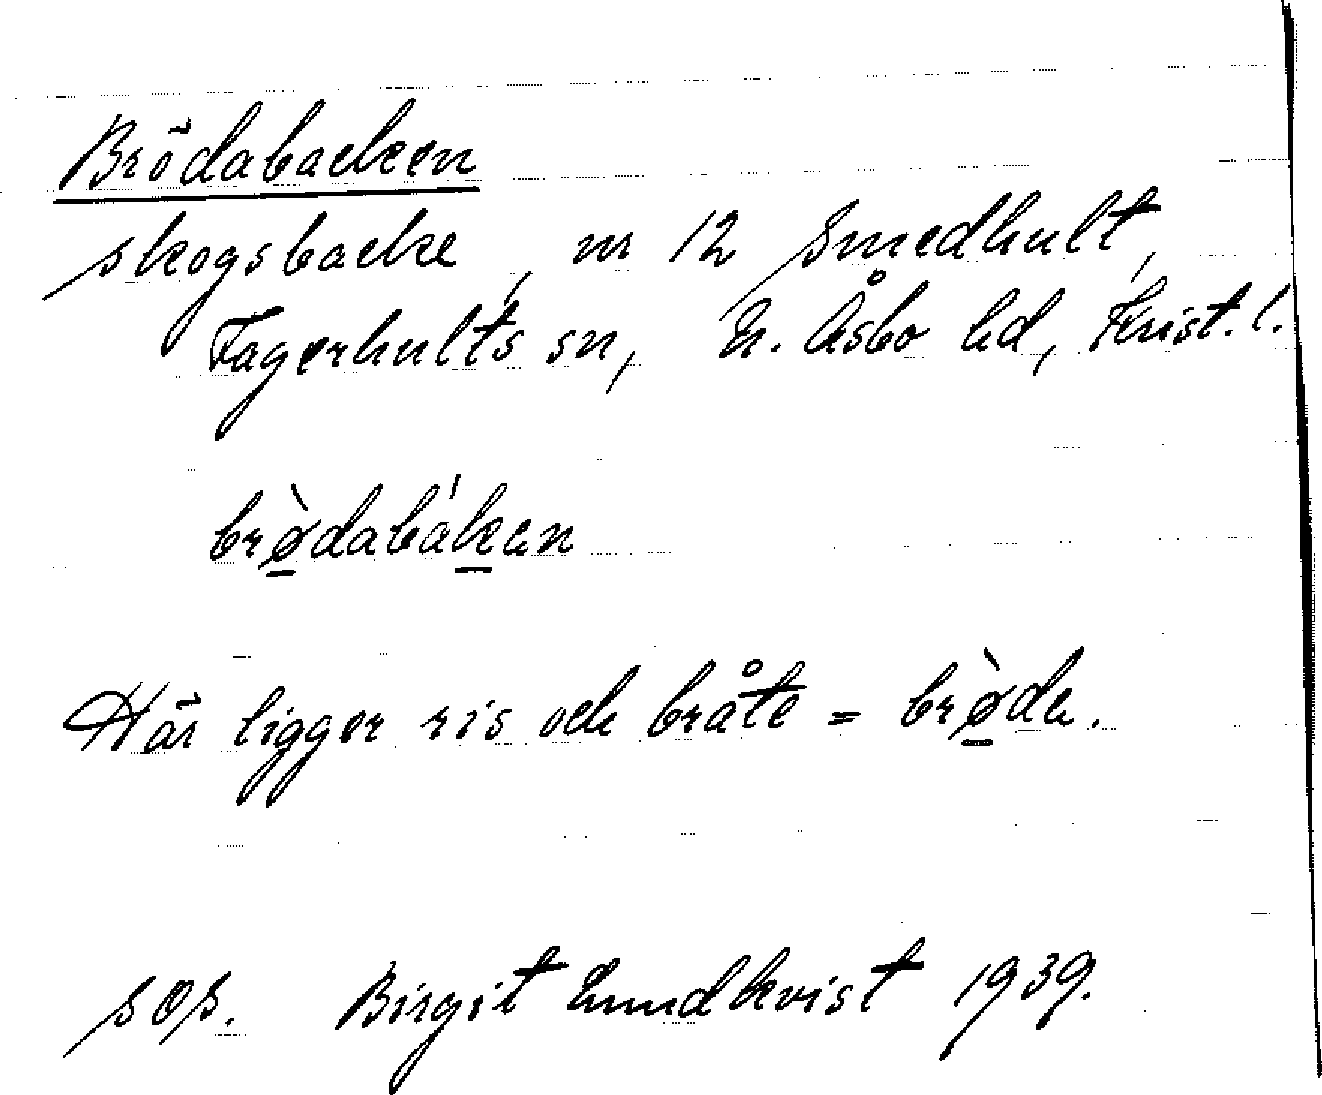 Brödabacken
skogsbacke, nr 12 Smedhult,
Fagerhults sn, N. Åsbo hd, Krist. l.
brø̀dabák̲en
Här ligger ris och bråte = brø̀de.
sos. Birgit Lundkvist 1939.